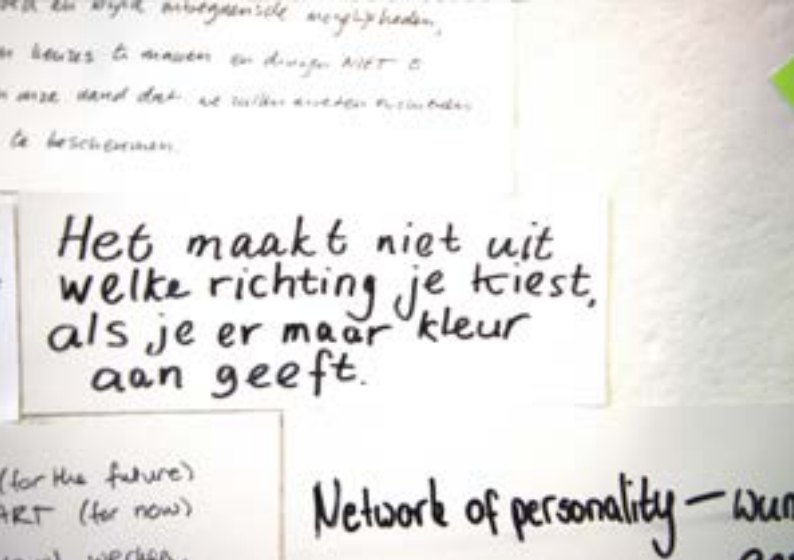 en wijd onbegrensde mogelijkheden,
keuzes te maken en durven NIET
onze hand dat we zullen moeten
te beschermen.
Het maakt niet uit
welke richting je kiest,
als je er maar kleur
aan geeft.
(for the future)
ART (for now)
werken.
Network of personality –